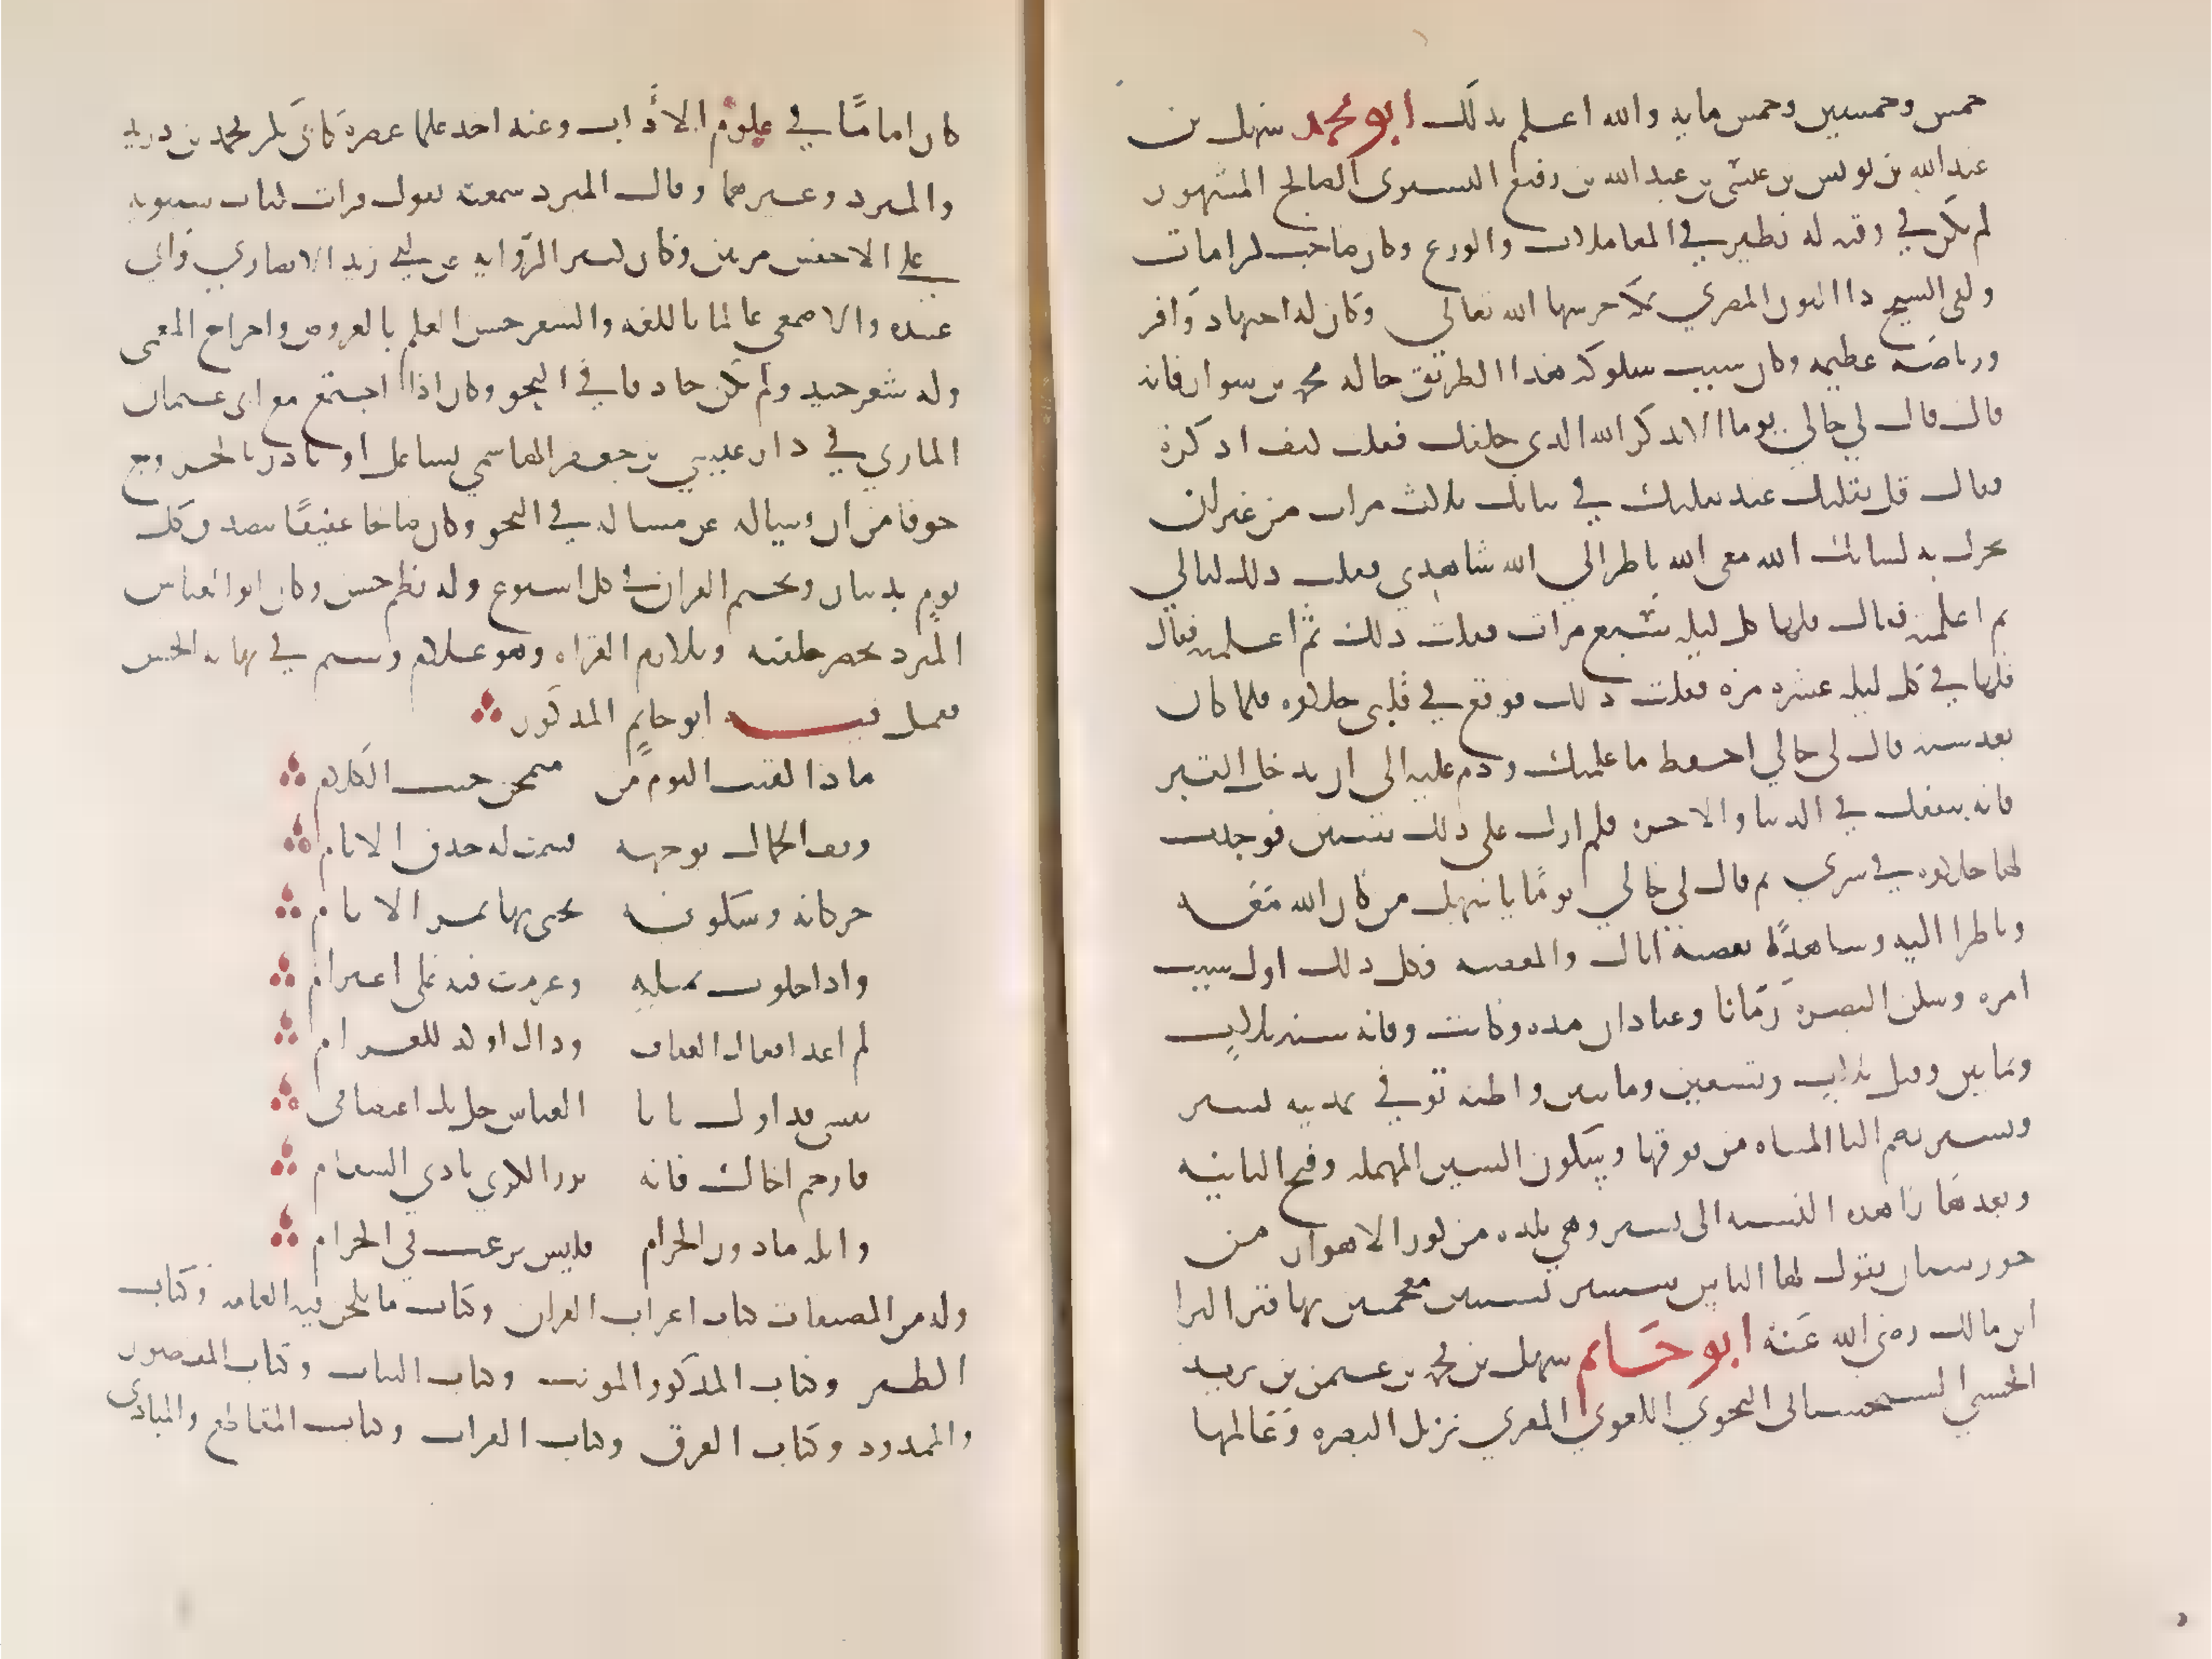 خمس وخمسين وخمس مايه والله اعلم بذلك ابو محمد سهل بن
عبد الله بن يونس بن عيسى بن عبد الله بن رفيع التستري الصالح المشهور
لم يكن في وقته له نظير في المعاملات والورع وكان صاحب كرامات
ولقي الشيخ ذا النون المصري بمكة حرسها الله تعالى وكان له اجتهاد وافر
ورياضه عظيمه وكان سبب سلوكه هذا الطريق خاله محمد بن سوار فانه
قال قال لي خالي يوما الا تذكر الله الذي خلقك فقلت كيف اذكره
فقال قل بقلبك عند تقلبك في ثيابك ثلاث مرات من غير ان
تحرك به لسانك الله معي الله ناظر الي الله شاهدي فقلت ذلك ليالي
ثم اعلمته فقال قلها كل ليله سبع مرات فقلت ذلك ثم اعلمته فقال
قلها في كل ليله عشره مره فقلت ذلك فوقع في قلبي حلاوه فلما كان
بعد سنه قال لي خالي احفظ ما علمتك ودم عليه الى ان تدخل القبر
فانه ينفعك في الدنيا والاخره فلم ازل على ذلك سنين فوجدت
لها حلاوه في سري ثم قال لي خالي يومًا يا سهل من كان الله معه
وناظرا اليه وشاهده يعصيه اياك والمعصيه فكل ذلك اول سبب
امره وسكن البصره زمانا وعبادان مده وكانت وفاته سنه ثلاث
وثمانين وقيل ثلاث وتسعين ومايتين واظنه توفي بمدينه تستر
وتستر بضم التا المثناه من فوقها وسكون السين المهمله وفتح الثانيه
وبعدها را هذه النسبه الى تستر وهي بلده من كور الاهواز من
خورستان يقول لها الناس ششتر بشينين معجمتين بها قبر البرا
ابن مالك رضي الله عنه ابو حاتم سهل بن محمد بن عثمن بن يزيد
الجشمي السجستاني النحوي اللغوي المقري نزيل البصره وعالمها
كان اماما في علوم الاداب وعنه اخذ علما عصره كابي بكر محمد بن دريد
والمبرد وغيرهما وقال المبرد سمعته يقول قرات كتاب سيبويه
على الاخفش مرتين وكان كثير الروايه عن ابي زيد الانصاري وابي
عبيده والاصمعي عالما باللغه والشعر حسن العلم بالعروض واخراج المعمى
وله شعر جيد ولم يكن حاذقا في النحو وكان اذا اجتمع مع ابي عثمان
المازني في دار عيسى بن جعفر الهاشمي تشاغل او بادر بالخروج
خوفا من ان يساله عن مساله في النحو وكان صالحا عفيفًا يتصدق كل
يوم بدينار ويختم القران في كل اسبوع وله نظم حسن وكان ابو العباس
المبرد يحضر حلقته ويلازم القراه وهو غلام وسيم في نهايه الحسن
فعمل فيه ابو حاتم المذكور
ماذا لقيت اليوم من متمجن خنث الكلام
وقف الجمال بوجهه فسمت له حدق الانام
حركاته وسكونه تجنى بها ثمر الاثام
واذا خلوت بمثله وعزمت فيه على اعتزام
لم اعد افعال العفاف وذاك اوكد للغرام
نفسي فداوك يا ابا العباس جل بك اعتصامي
فارحم اخاك فانه نزر الكرى بادي السقام
وانله ما دون الحرام فليس يرغب في الحرام
وله من المصنفات كتاب اعراب القران وكتاب ما يلحن فيه العامه وكتاب
الطير وكتاب المذكور والمونث وكتاب النبات وكتاب المقصور
والممدود وكتاب الفرق وكتاب القراات وكتاب المقاطع والمبادي